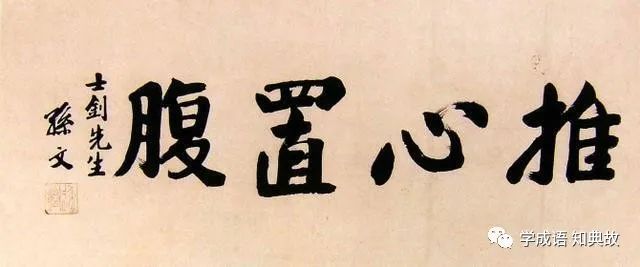 推心置腹
士釗先生
孫文
学成语 知典故